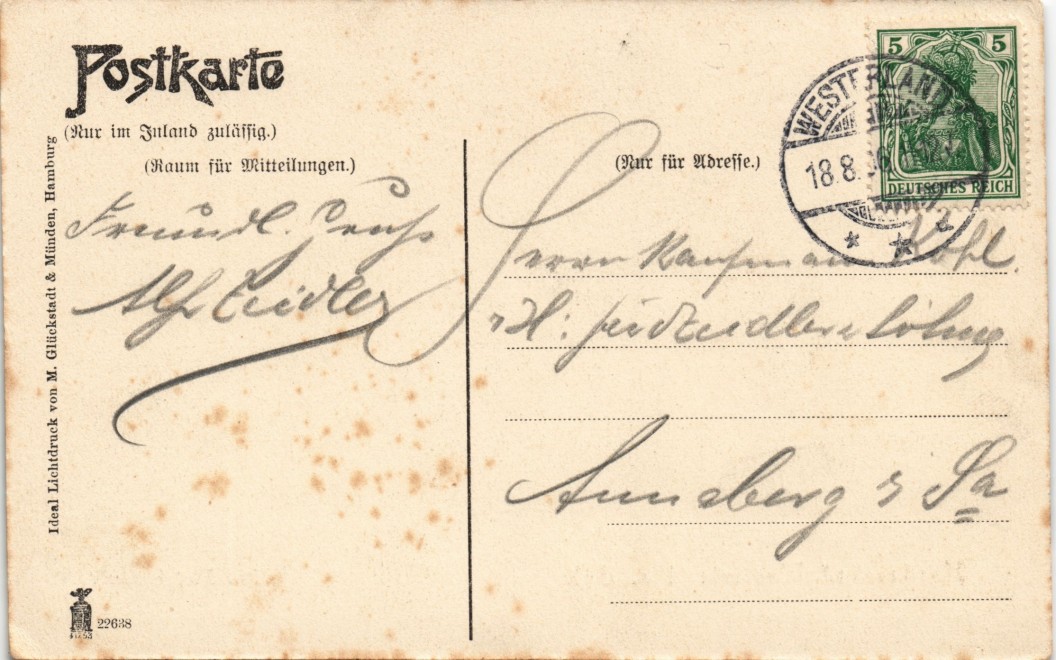 Postkarte
(Nur im Inland zulässig.)
(Raum für Mitteilungen.)
Freundl. Gruß
Alf Zeidler
Ideal Lichtdruck von M. Glückstadt & Münden, Hamburg
22638
(Nur für Adresse.)
5 5
DEUTSCHES REICH
WESTERLAND
18.8.
2
Herrn Kaufmann Kohl.
Annaberg i Sa